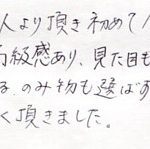 人より頂き初めて
高級感あり、見た目も
る。のみ物も選ばず
く頂きました。